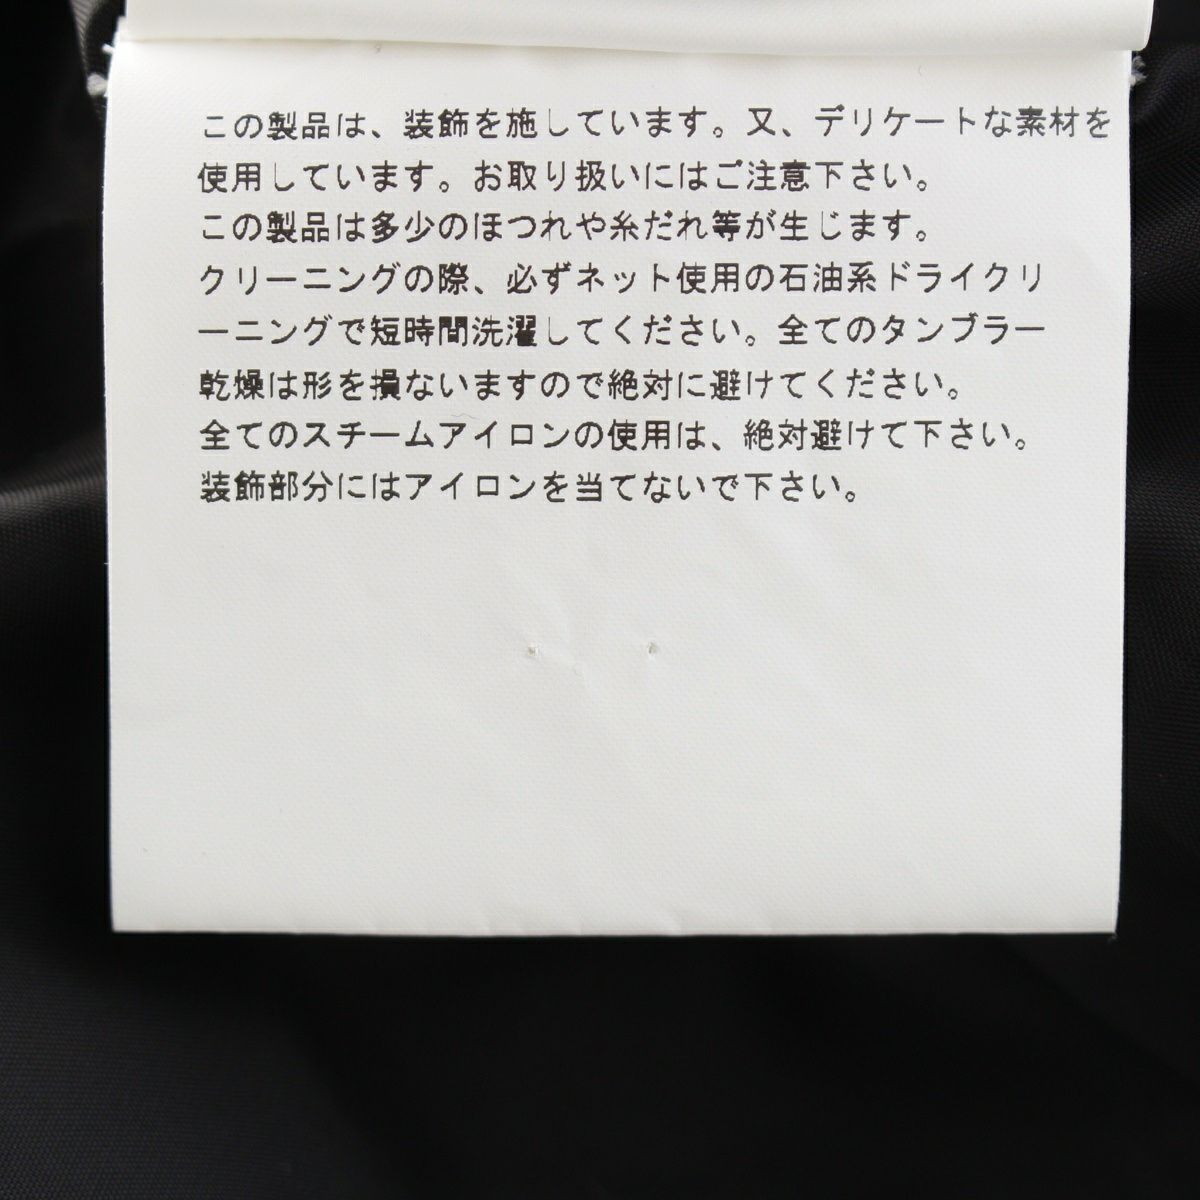 この製品は、装飾を施しています。又、デリケートな素材を
使用しています。お取り扱いにはご注意下さい。
この製品は多少のほつれや糸だれ等が生じます。
クリーニングの際、必ずネット使用の石油系ドライクリ
ーニングで短時間洗濯してください。全てのタンブラー
乾燥は形を損ないますので絶対に避けてください。
全てのスチームアイロンの使用は、絶対避けて下さい。
装飾部分にはアイロンを当てないで下さい。